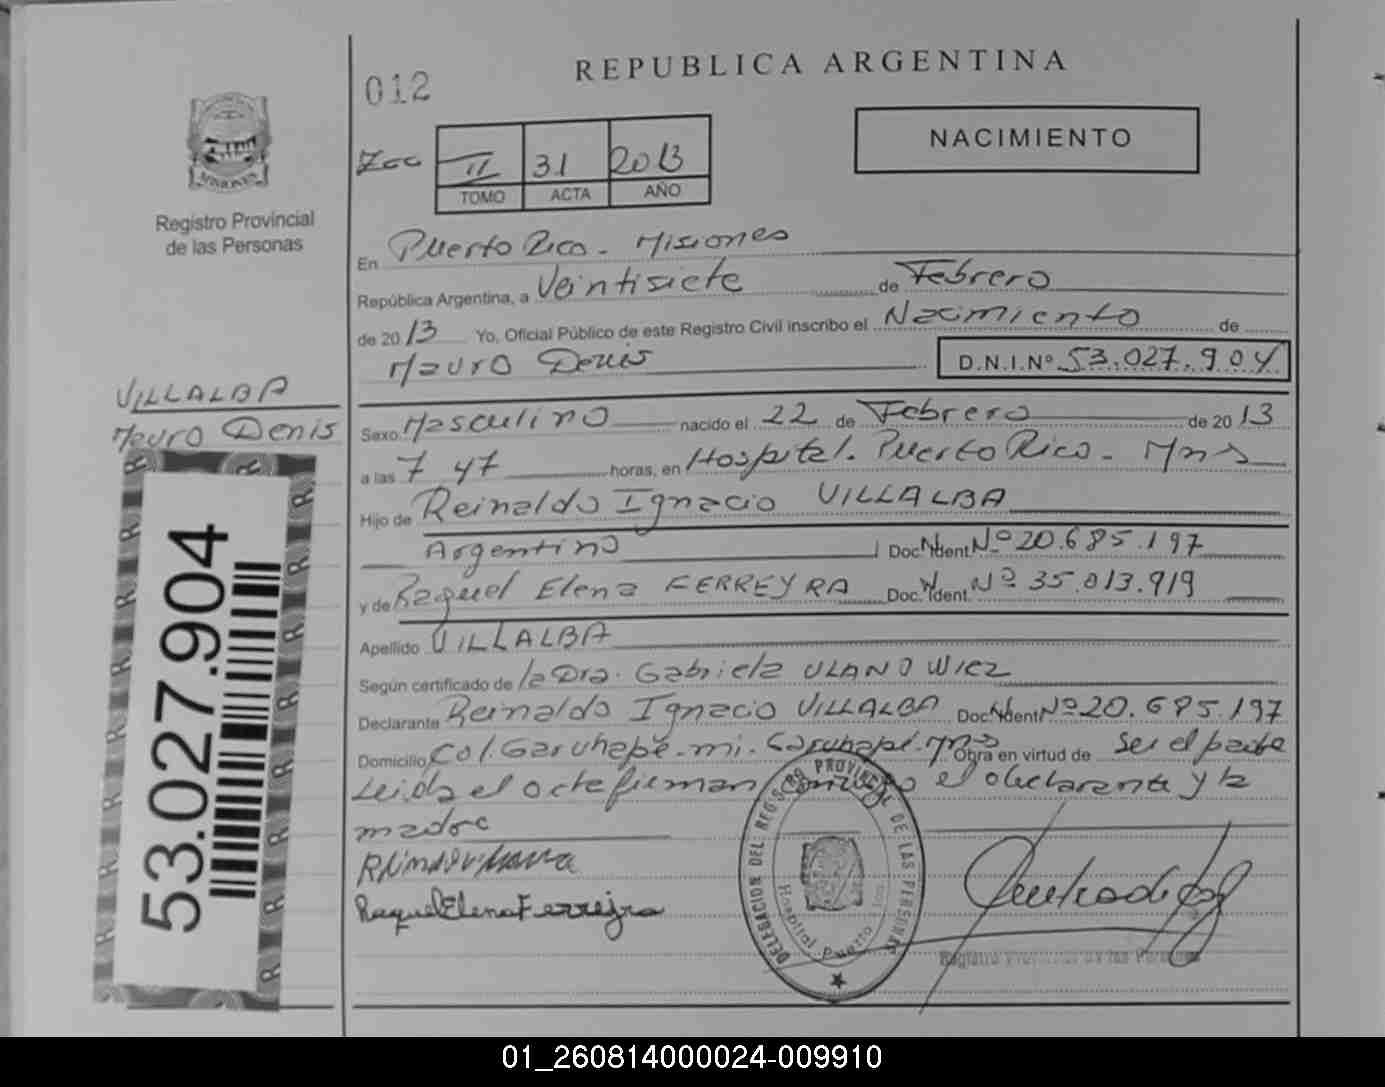 012
REPUBLICA ARGENTINA
NACIMIENTO
MISIONES
Registro Provincial
de las Personas
II 31 2013
TOMO ACTA AÑO
En Puerto Rico - Misiones
República Argentina, a Veintisiete de Febrero
de 2013 Yo, Oficial Público de este Registro Civil inscribo el Nacimiento de
Mauro Denis D.N.I.Nº 53.027.904
VILLALBA
Mauro Denis
Sexo Masculino nacido el 22 de Febrero de 2013
a las 7 47 horas, en Hospital. Puerto Rico - Mns
Hijo de Reinaldo Ignacio VILLALBA
Argentino Doc. Ident. Nº 20.685.197
y de Raquel Elena FERREYRA Doc. Ident. Nº 35.013.919
Apellido VILLALBA
Según certificado de la Dra. Gabriela ULANOWICZ
Declarante Reinaldo Ignacio VILLALBA Doc. Ident Nº 20.685.197
Domicilio Col. Garuhapé-mi. Garuhapé. Mns Obra en virtud de Ser el padre
Leida el acta firman conmigo el declarante y la
madre
Raquel Elena Ferreyra
DELEGACION DEL REGISTRO PROVINCIAL DE LAS PERSONAS
Hospital Puerto Rico
Registro Provincial de las Personas
53.027.904
01_260814000024-009910